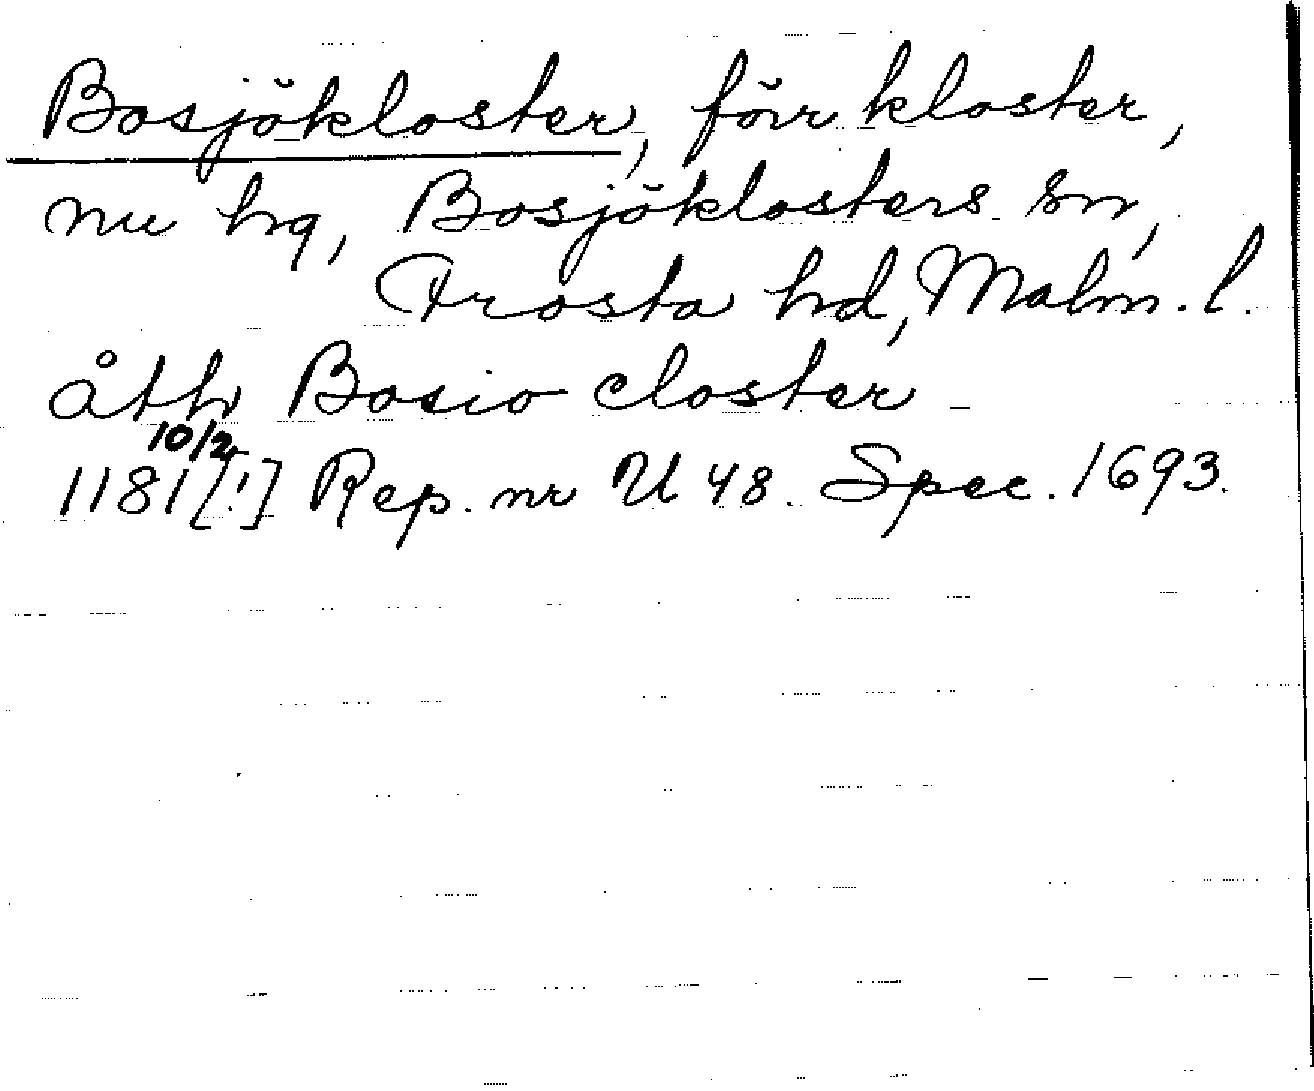 Bosjökloster, förr kloster,
nu hg, Bosjöklosters sn,
Frosta hd, Malm. l.
åth Bosio closter
10/2
1181 [!] Rep. nr U 48. Spec. 1693.